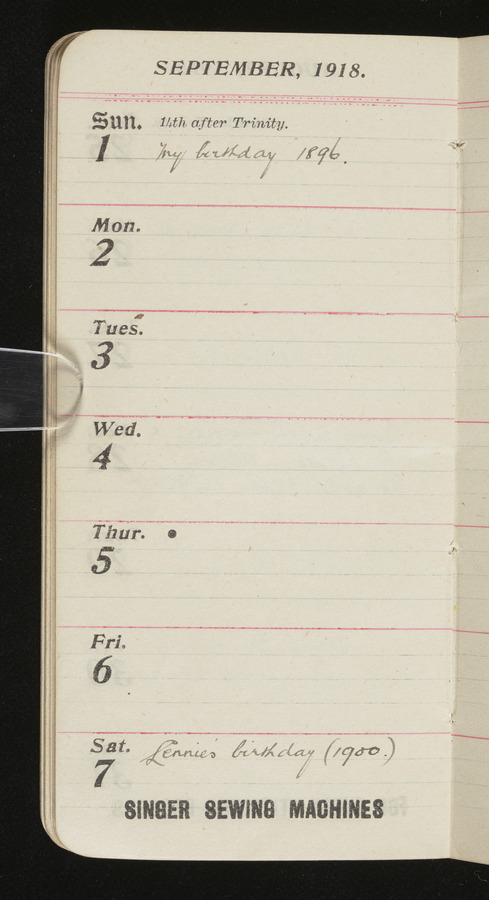 SEPTEMBER, 1918.
Sun. 14th after Trinity.
1 My birthday 1896.
Mon.
2
Tues.
3
Wed.
4
Thur. ●
5
Fri.
6
Sat. Lennie's birthday (1900.)
7
SINGER SEWING MACHINES